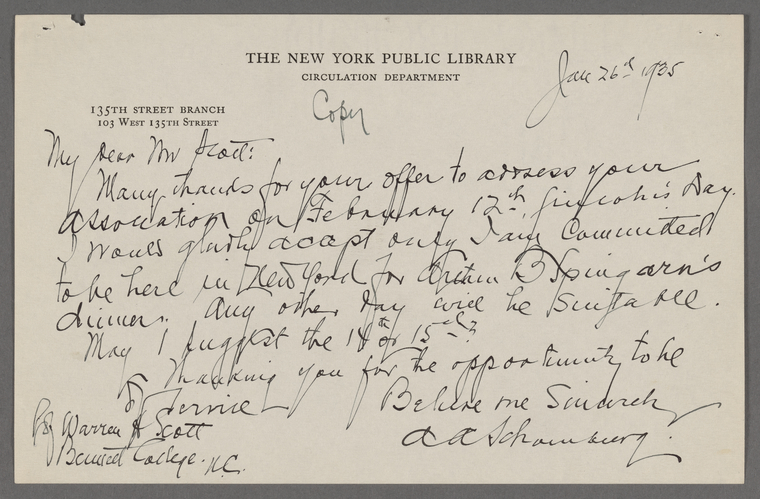 THE NEW YORK PUBLIC LIBRARY
CIRCULATION DEPARTMENT
Jan 26th 1935
135TH STREET BRANCH
103 WEST 135TH STREET
Copy
My dear Mr Scott:
Many thanks for your offer to address your
Association on February 12th, Lincoln's Day.
I would gladly accept only I am Committed
to be here in New York for Arthur B Spingarn's
dinner. Any other day will be Suitable.
May I suggest the 14th or 15th?
Thanking you for the opportunity to be
of Service
Believe me Sincerely
A A Schomburg.
Warren H Scott
Bennett College. N.C.